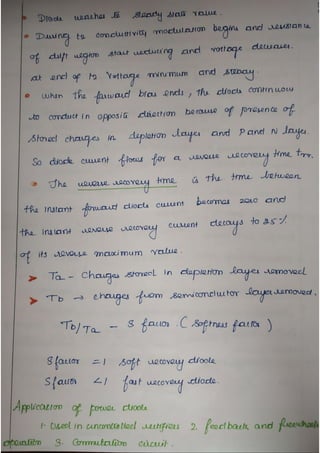 • Diode reaches to steady state value.
• During t2 conductivity modulation begins and resistance
of drift region start reducing and voltage decreases.
at end of t2 voltage minimum and steady.
• when the forward bias ends, the diode continuous
to conduct in opposite direction because of presence of
stored charges in depletion layer and P and N layer.
So diode current flows for a reverse recovery time trr.
• The reverse recovery time is the time between
the instant forward diode current becomes zero and
the instant reverse recovery current decays to 25 %
of its reverse maximum value.
➤ Ta - Charges stored in depletion layer removed
➤ Tb → charges from semiconductor layer removed.
Tb/Ta - S factor (Softness factor)
S factor = 1 soft recovery diode
S factor < 1 fast recovery diode.
Application of power diode
1. Used in uncontrolled rectifiers 2. feedback and freewheeling
operation 3. Commutation circuit.